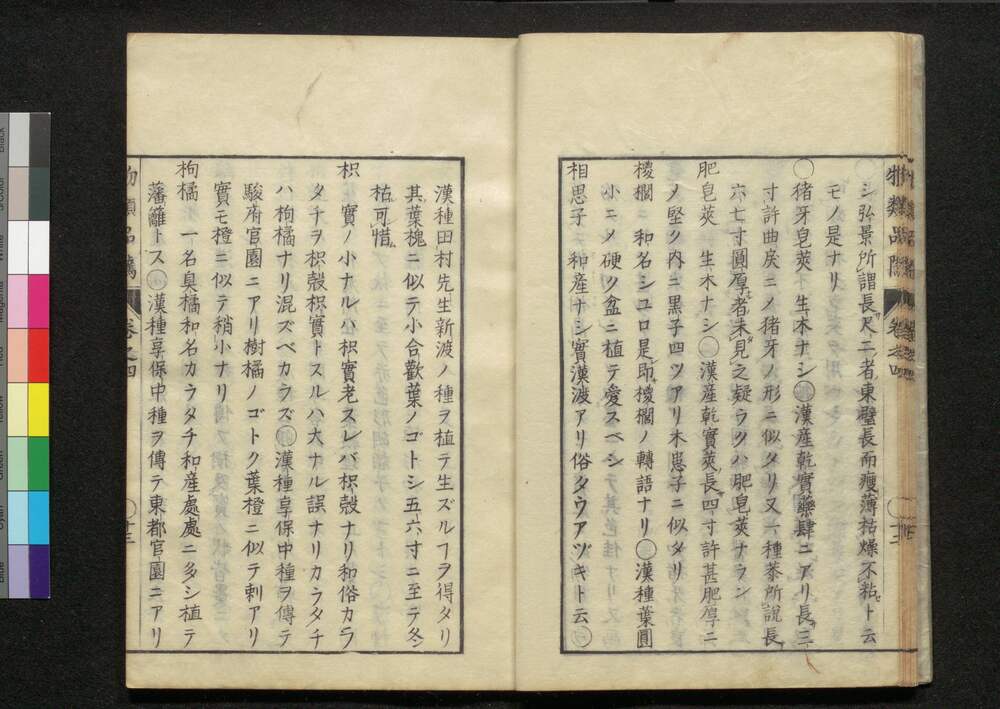 シ弘景所謂長尺二者東壁長而瘦薄枯燥不粘ト云
モノ是ナリ
豬牙皂莢 生木ナシ 漢産乾實藥肆ニアリ長三
寸許曲戾ニメ豬牙ノ形ニ似タリ又一種荼所說長
六七寸圓厚者未見之疑ラクハ肥皂莢ナラン
肥皂莢 生木ナシ 漢産乾實莢長四寸許甚肥厚ニ
メ堅ク內ニ黒子四ツアリ木患子ニ似タリ
椶櫚 和名シユロ是即椶櫚ノ轉語ナリ 漢種葉圓
小ニメ硬ツ盆ニ植テ愛スベシ
相思子 和産ナシ實漢渡アリ俗タウアヅキト云
物類品隲 卷之四
漢種田村先生新渡ノ種ヲ植テ生ズルヿヲ得タリ
其葉槐ニ似テ小合歡葉ノゴトシ五六寸ニ至テ冬
枯可惜
枳 實ノ小ナルハ枳實老スレバ枳殼ナリ和俗カラ
タチヲ枳殼枳實トスルハ大ナル誤ナリカラタチ
ハ枸橘ナリ混ズベカラズ 漢種享保中種ヲ傳テ
駿府官園ニアリ樹橘ノゴトク葉橙ニ似テ刺アリ
實モ橙ニ似テ稍小ナリ
枸橘 一名臭橘和名カラタチ和産處處ニ多シ植テ
藩籬トス 漢種享保中種ヲ傳テ東都官園ニアリ
卷之四
十三